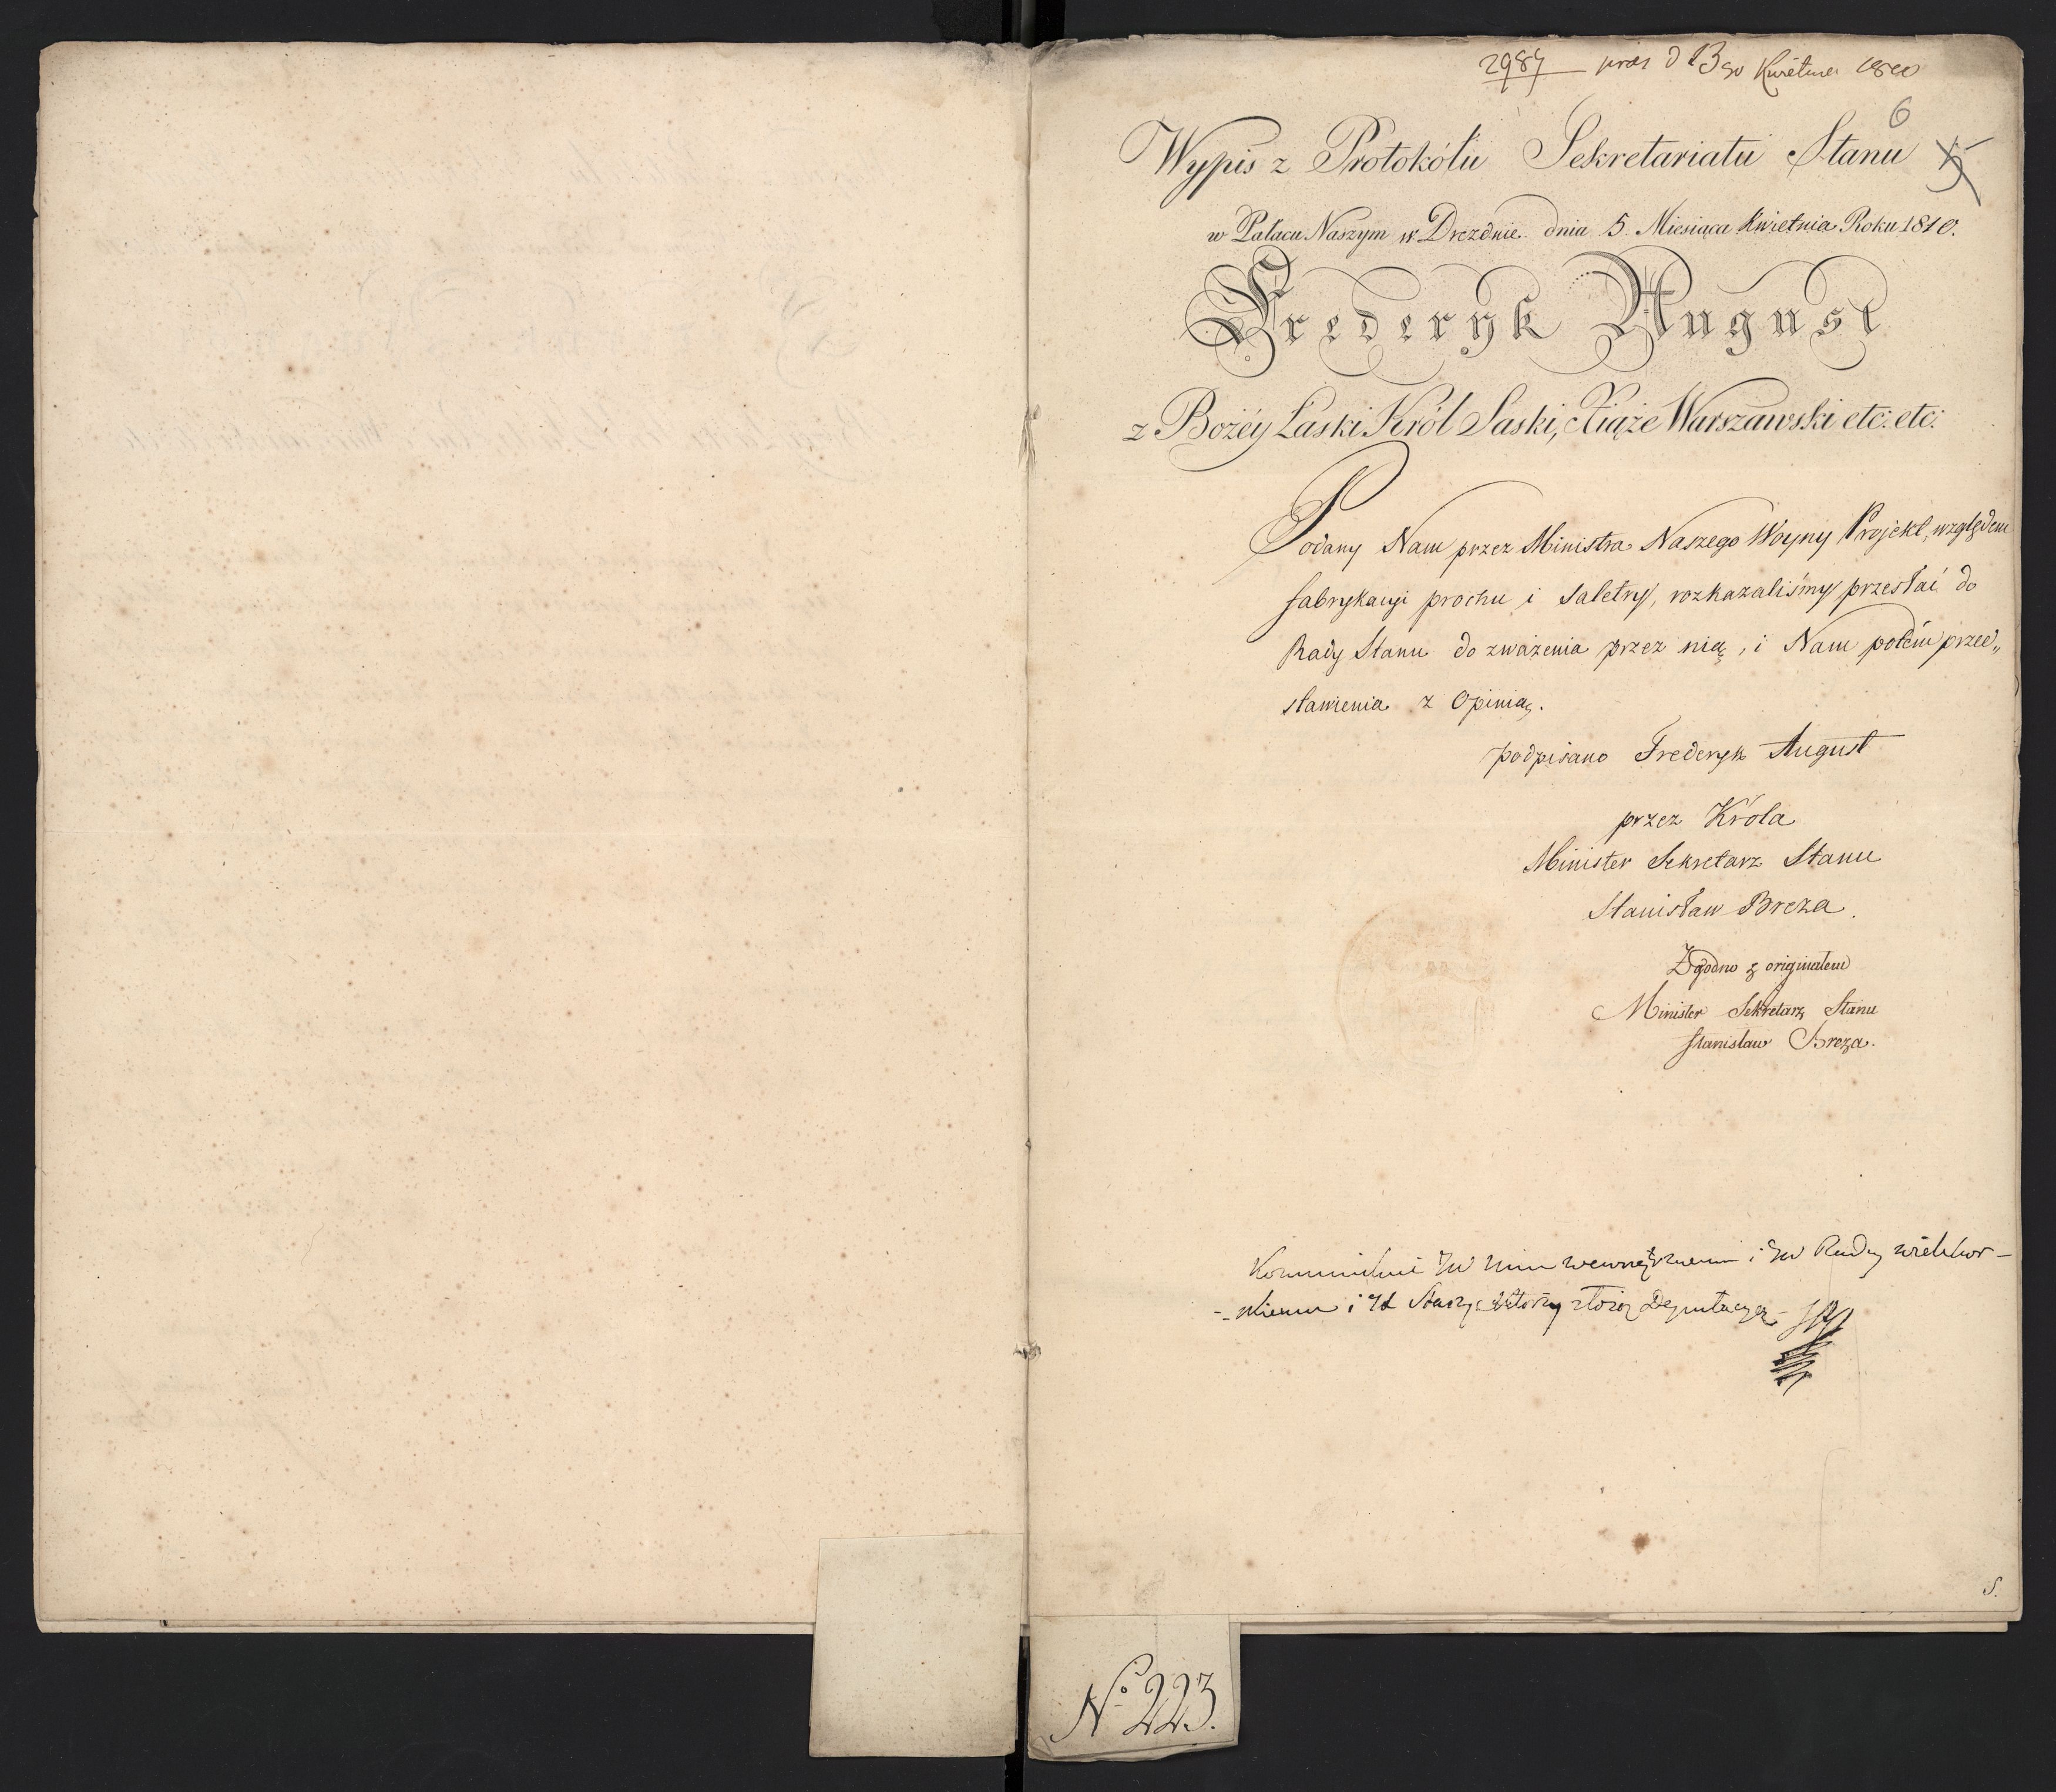 2987 pres d 13go Kwietnia 1810
6
Wypis z Protokółu Sekretariatu Stanu
5
w Pałacu Naszym w Dreźdnie dnia 5 Miesiąca Kwietnia Roku 1810.
Frederyk August
z Bożéy Łaski Król Saski, Xiąże Warszawski etc: etc:
Podany Nam przez Ministra Naszego Woyny Projekt, względem
fabrykacyi prochu i saletry, rozkazaliśmy przesłać do
Rady Stanu do zważenia przez nią, i Nam potém przed„
stawienia z Opinią.
podpisano Frederyk August
przez Króla
Minister Sekretarz Stanu
Stanisław Breza.
Zgodno z originałem
Minister Sekretarz Stanu
Stanisław Breza.
i JW Radcy
i Deputacyą
S.
No 223.